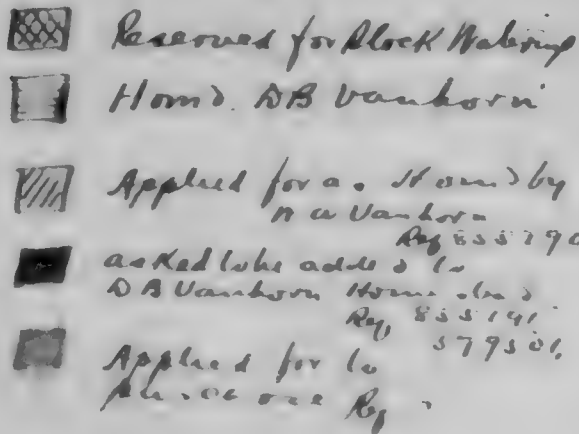 Reserved for Stock Watering
Hom'd. DB Vanhorn
Applied for a. Hom'd by
n a Vanhorn
Ref 855790
asked to be added to
DB Vanhorn Homestead
Ref, 855191
579501,
Applied for to
Ref.